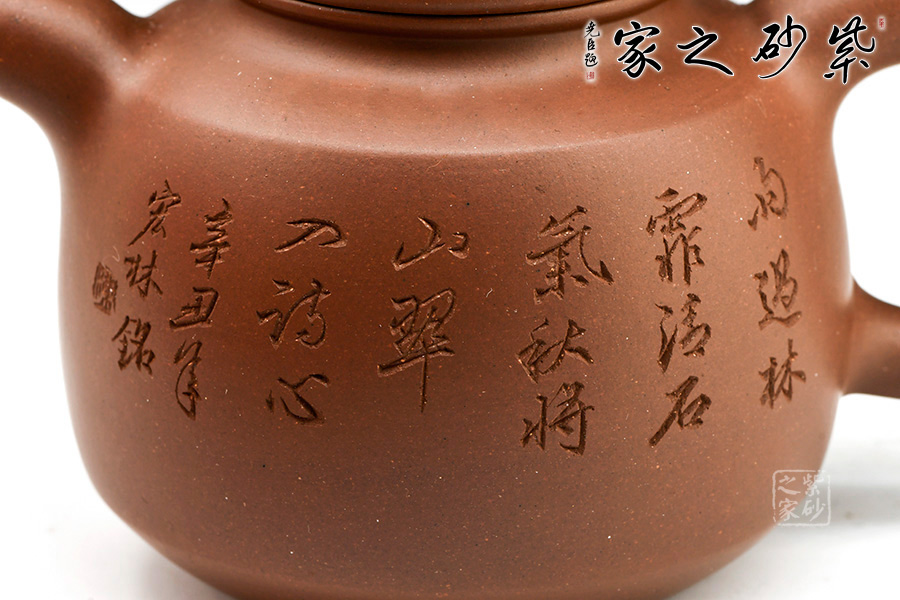 紫砂之家
尧臣题
雨過林
霏清石
氣秋将
山翠
入诗心
辛丑年
宏林銘
紫砂
之家